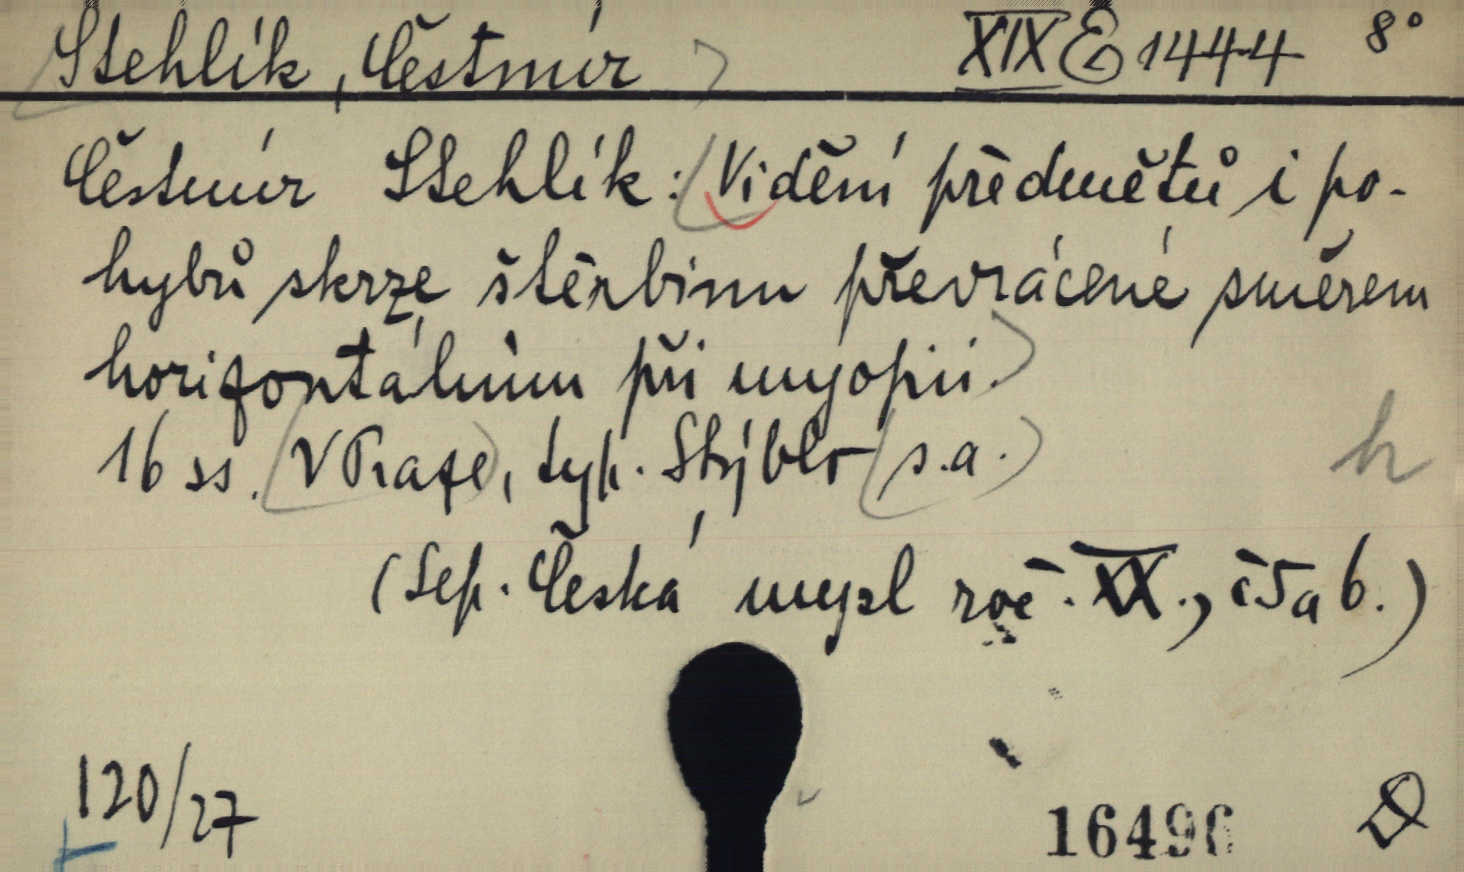 Stehlík, Čestmír XIX E 1444 8°
Čestmír Stehlík: Vidění předmětů i po-
hybů skrze štěrbinu převrácené směrem
horizontálním při myopii.
16 ss. V Praze, typ. Stýblo s.a.
(Sep. Česká mysl roč. XX., č 5 a 6.)
120/27
16496